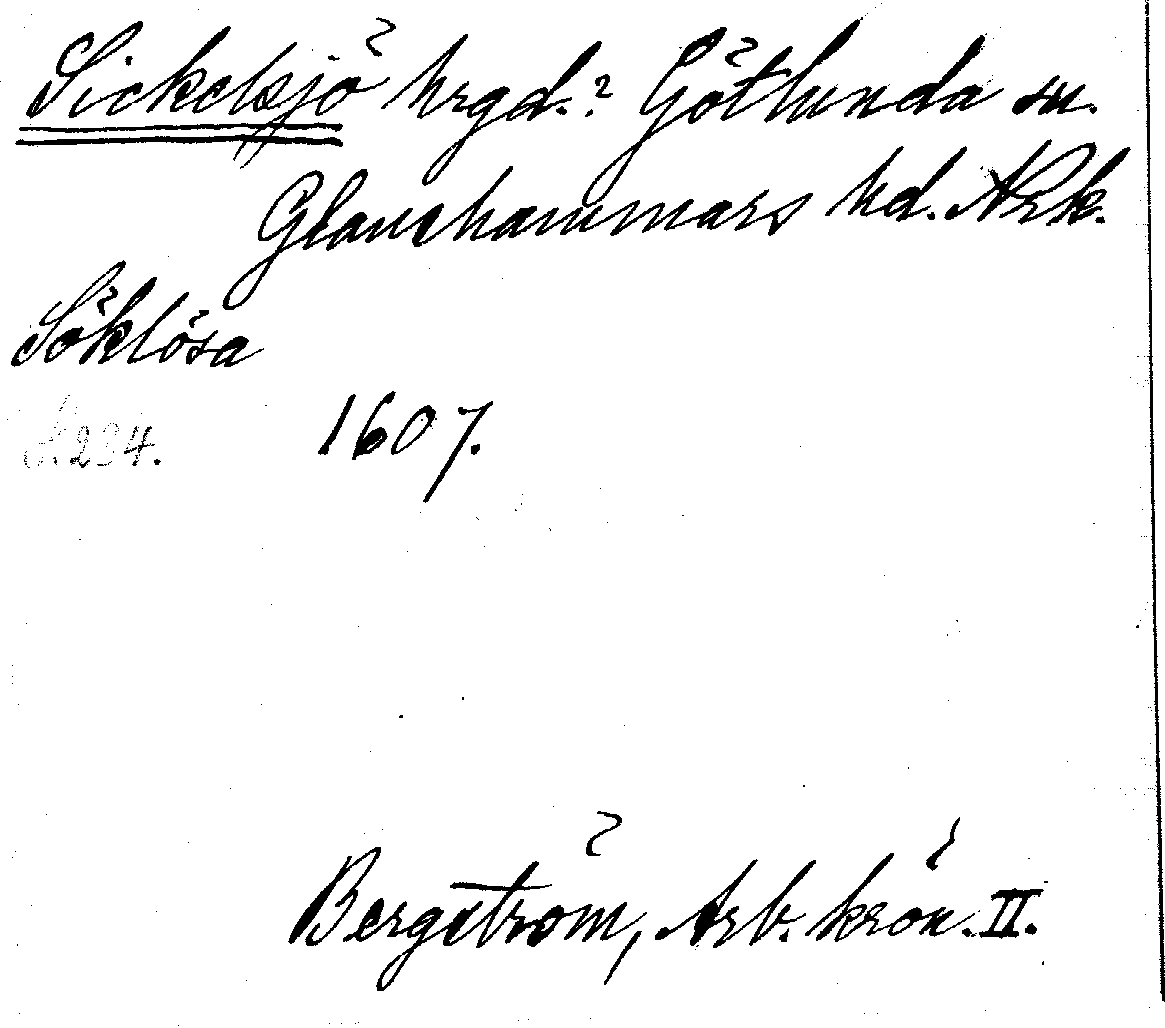 Sickelsjö hrgd.? Götlunda sn.
Glanshammars hd. Nrk.
Söklösa
s. 234. 1607.
Bergström, Arb. krön. II.